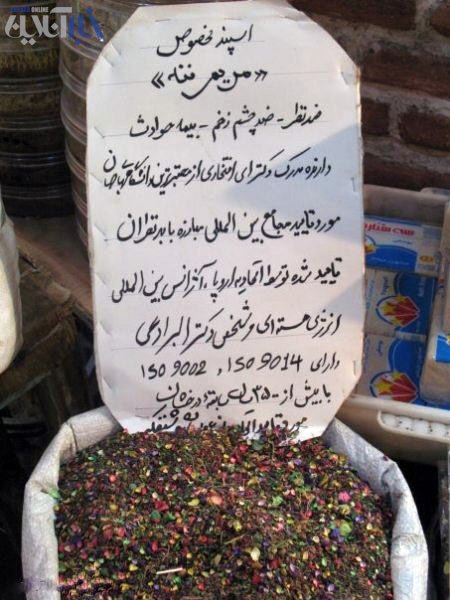 خبرآنلاین
ONLINE
اسپند مخصوص
«مریم ننه»
ضد نظر - ضد چشم زخم - بیمه حوادث
دارنده مدرک دکترای افتخاری از معتبرترین دانشگاههای جهان
مورد تایید مجامع بین المللی مبارزه با بد نظران
تایید شده توسط اتحادیه اروپا، آژانس بین المللی
انرژی هسته ای و شخص دکتر البرادعی
دارای ISO 9014 و ISO 9002
با بیش از ۳۵۰۰ سال سابقه درخشان
مورد تایید